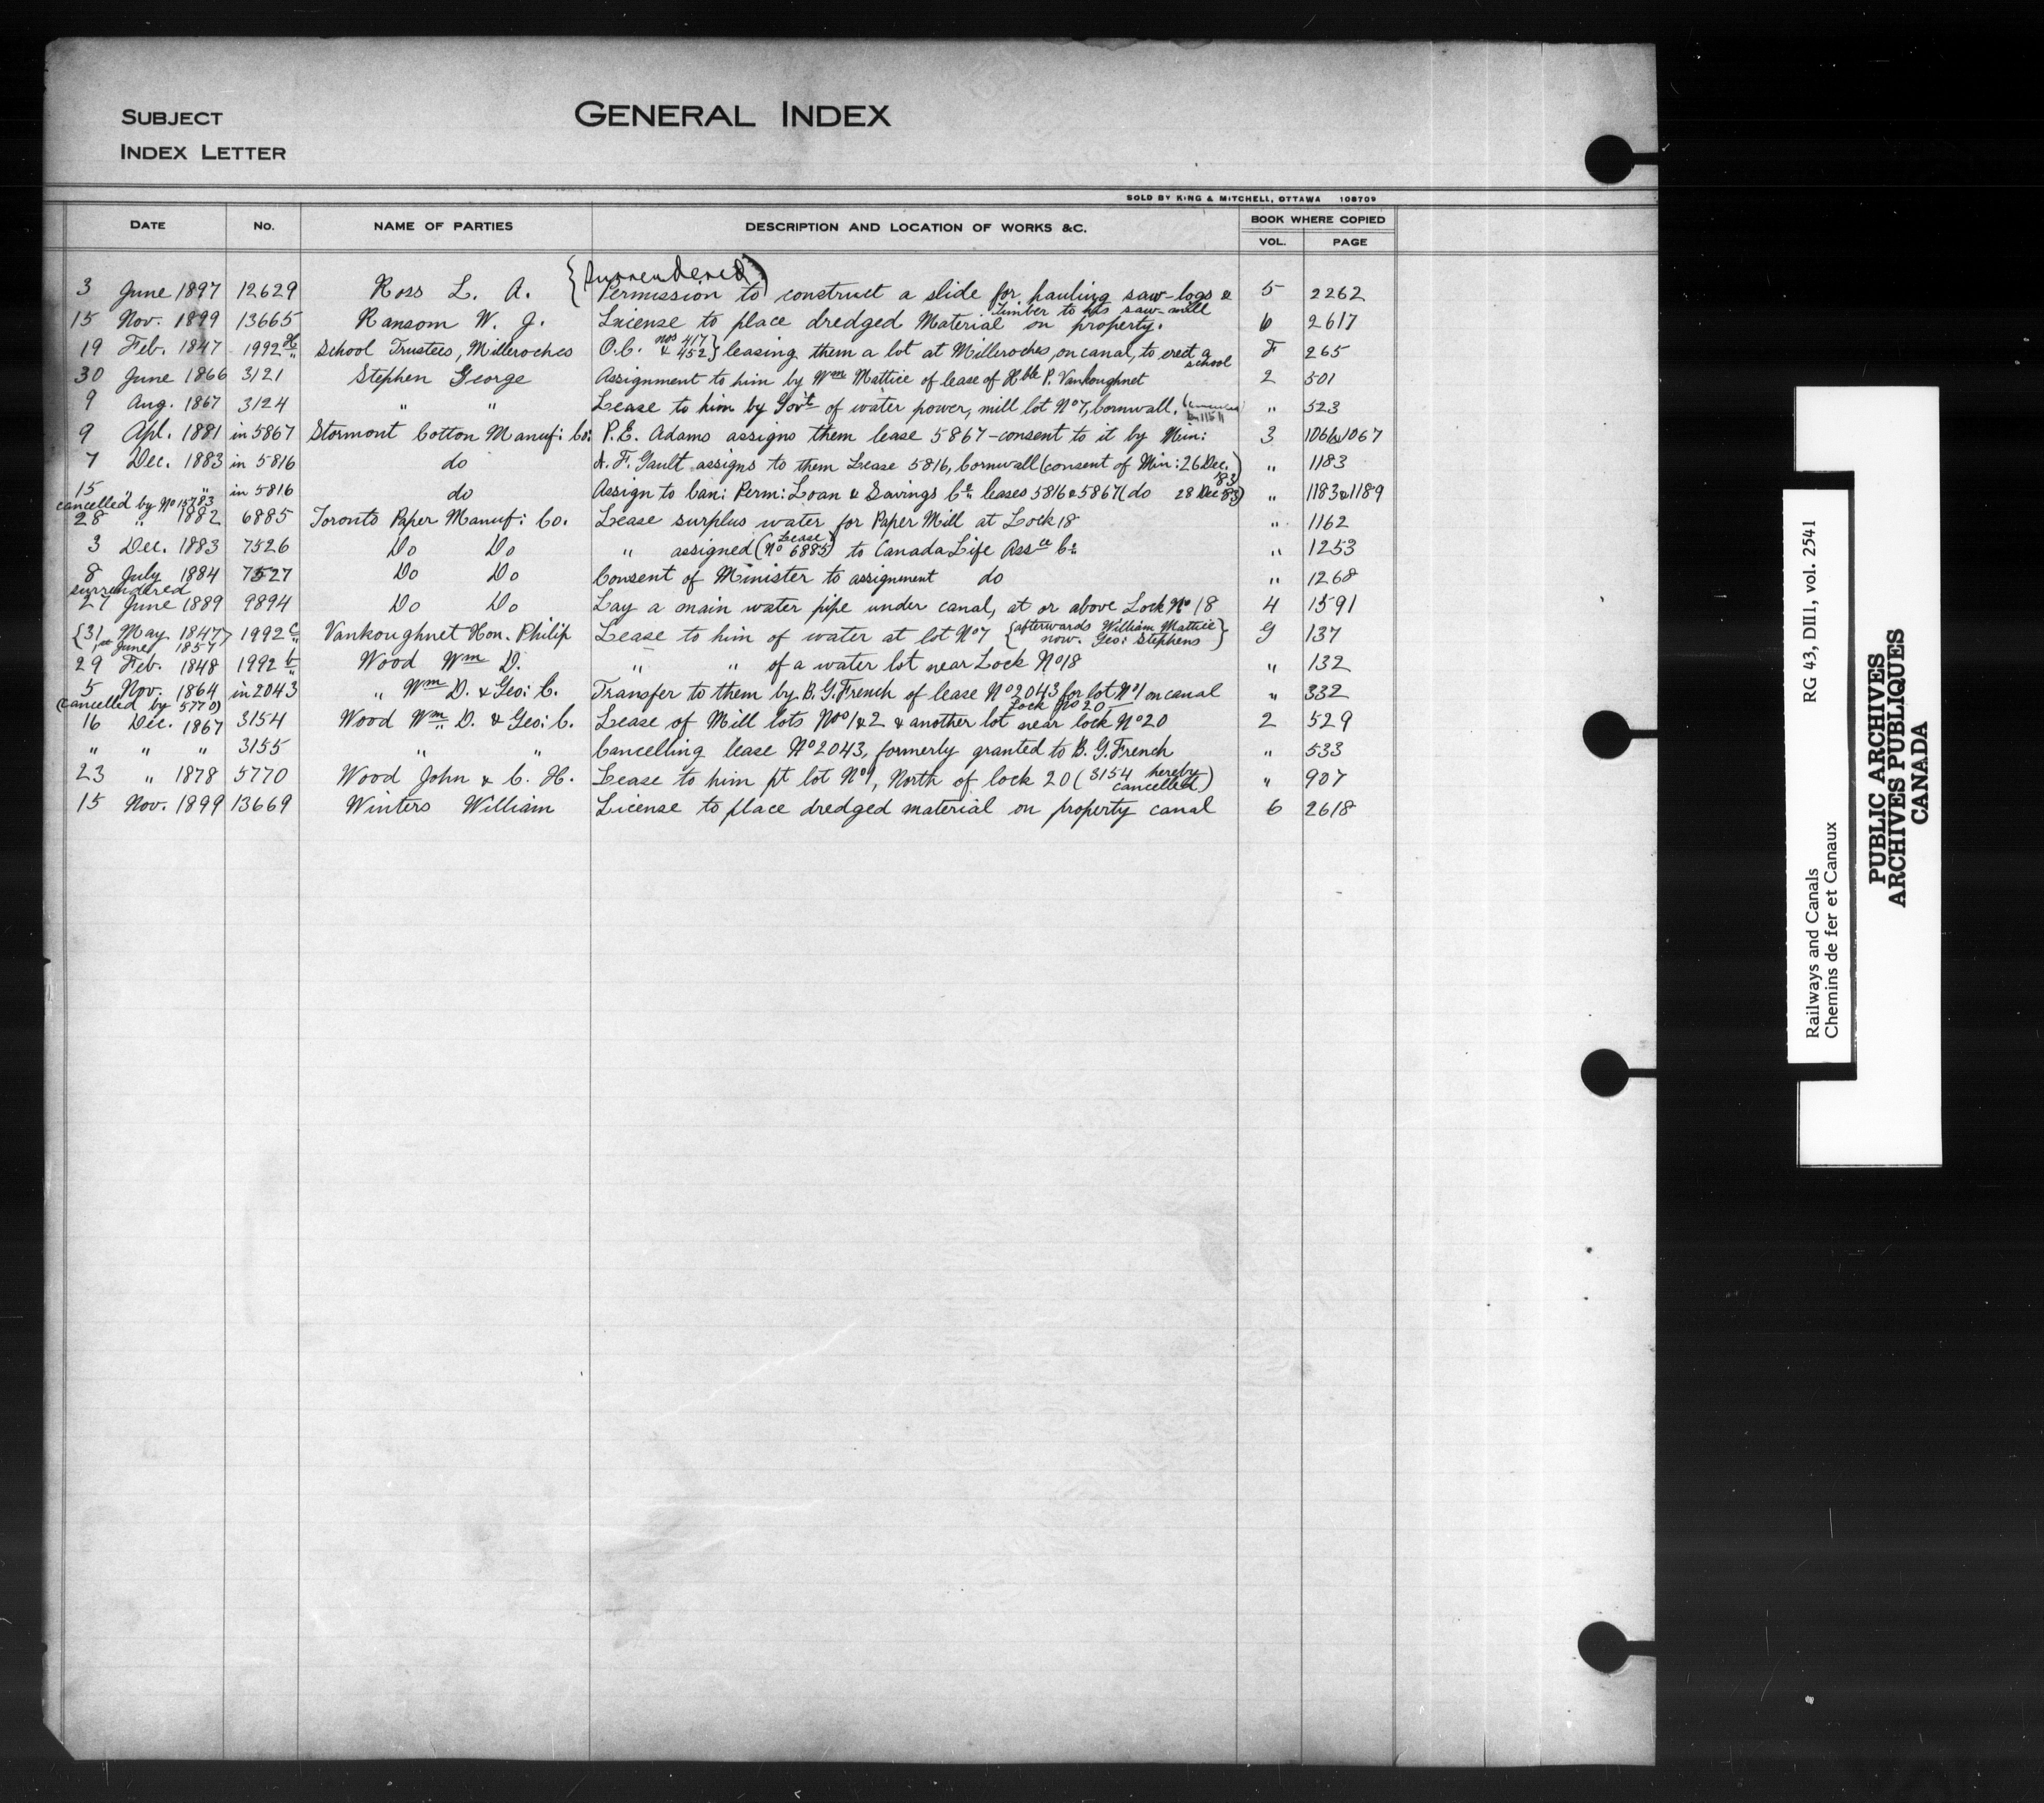 SUBJECT
GENERAL INDEX
INDEX LETTER
SOLD BY KING & MITCHELL, OTTAWA 108709
DATE NO. NAME OF PARTIES DESCRIPTION AND LOCATION OF WORKS &C. BOOK WHERE COPIED
VOL. PAGE
{Surrendered)
3 June 1897 12629 Ross L. A. Permission to construct a slide for hauling saw-logs & 5 2262
timber to his saw-mill
15 Nov. 1899 13665 Ransom W. J. License to place dredged Material on property. 6 2617
19 Feb. 1847 1992 H School Trustees, Milleroches O.C. nos 417 & 452} leasing them a lot at Milleroches, on canal, to erect a school F 265
30 June 1866 3121 Stephen George Assignment to him by Wm Mattice of lease of Hble P. Vankoughnet 2 501
9 Aug. 1867 3124 " " Lease to him by Gov't of water power, mill lot No 7, Cornwall. " 523
9 Apl. 1881 in 5867 Stormont Cotton Manuf: Co: P. E. Adams assigns them lease 5867 - consent to it by Min: 3 1066&1067
7 Dec. 1883 in 5816 do A. F. Gault assigns to them Lease 5816, Cornwall (consent of Min: 26 Dec. '83) " 1183
15 " " in 5816 do Assign to Can: Perm: Loan & Savings Co leases 5816 & 5867 (do 28 Dec 83) " 1183&1189
cancelled by No 15783
28 " 1882 6885 Toronto Paper Manuf: Co. Lease surplus water for Paper Mill at Lock 18 " 1162
3 Dec. 1883 7526 Do Do " assigned (Lease No 6885) to Canada Life Assce Co. " 1253
8 July 1884 7527 Do Do Consent of Minister to assignment do " 1268
surrendered
27 June 1889 9894 Do Do Lay a main water pipe under canal, at or above Lock No 18 4 1591
{31 May 1847} 1992 c Vankoughnet Hon. Philip Lease to him of water at lot No 7 {afterwards William Mattice now. Geo: Stephens} G 137
1st June 1857
29 Feb. 1848 1992 b Wood Wm D. " " of a water lot near Lock No 18 " 132
5 Nov. 1864 in 2043 " Wm D. & Geo: C. Transfer to them by B. G. French of lease No 2043 for lot No 1 on canal " 332
Lock No 20
(cancelled by 5770)
16 Dec. 1867 3154 Wood Wm D. & Geo: C. Lease of Mill lots Nos 1 & 2 & another lot near lock No 20 2 529
" " " 3155 " " Cancelling lease No 2043, formerly granted to B. G. French " 533
23 " 1878 5770 Wood John & C. H. Lease to him pt lot No 1, North of lock 20 (3154 hereby cancelled) " 907
15 Nov. 1899 13669 Winters William License to place dredged material on property canal 6 2618
RG 43, DII1, vol. 2541
Railways and Canals
Chemins de fer et Canaux
PUBLIC ARCHIVES
ARCHIVES PUBLIQUES
CANADA